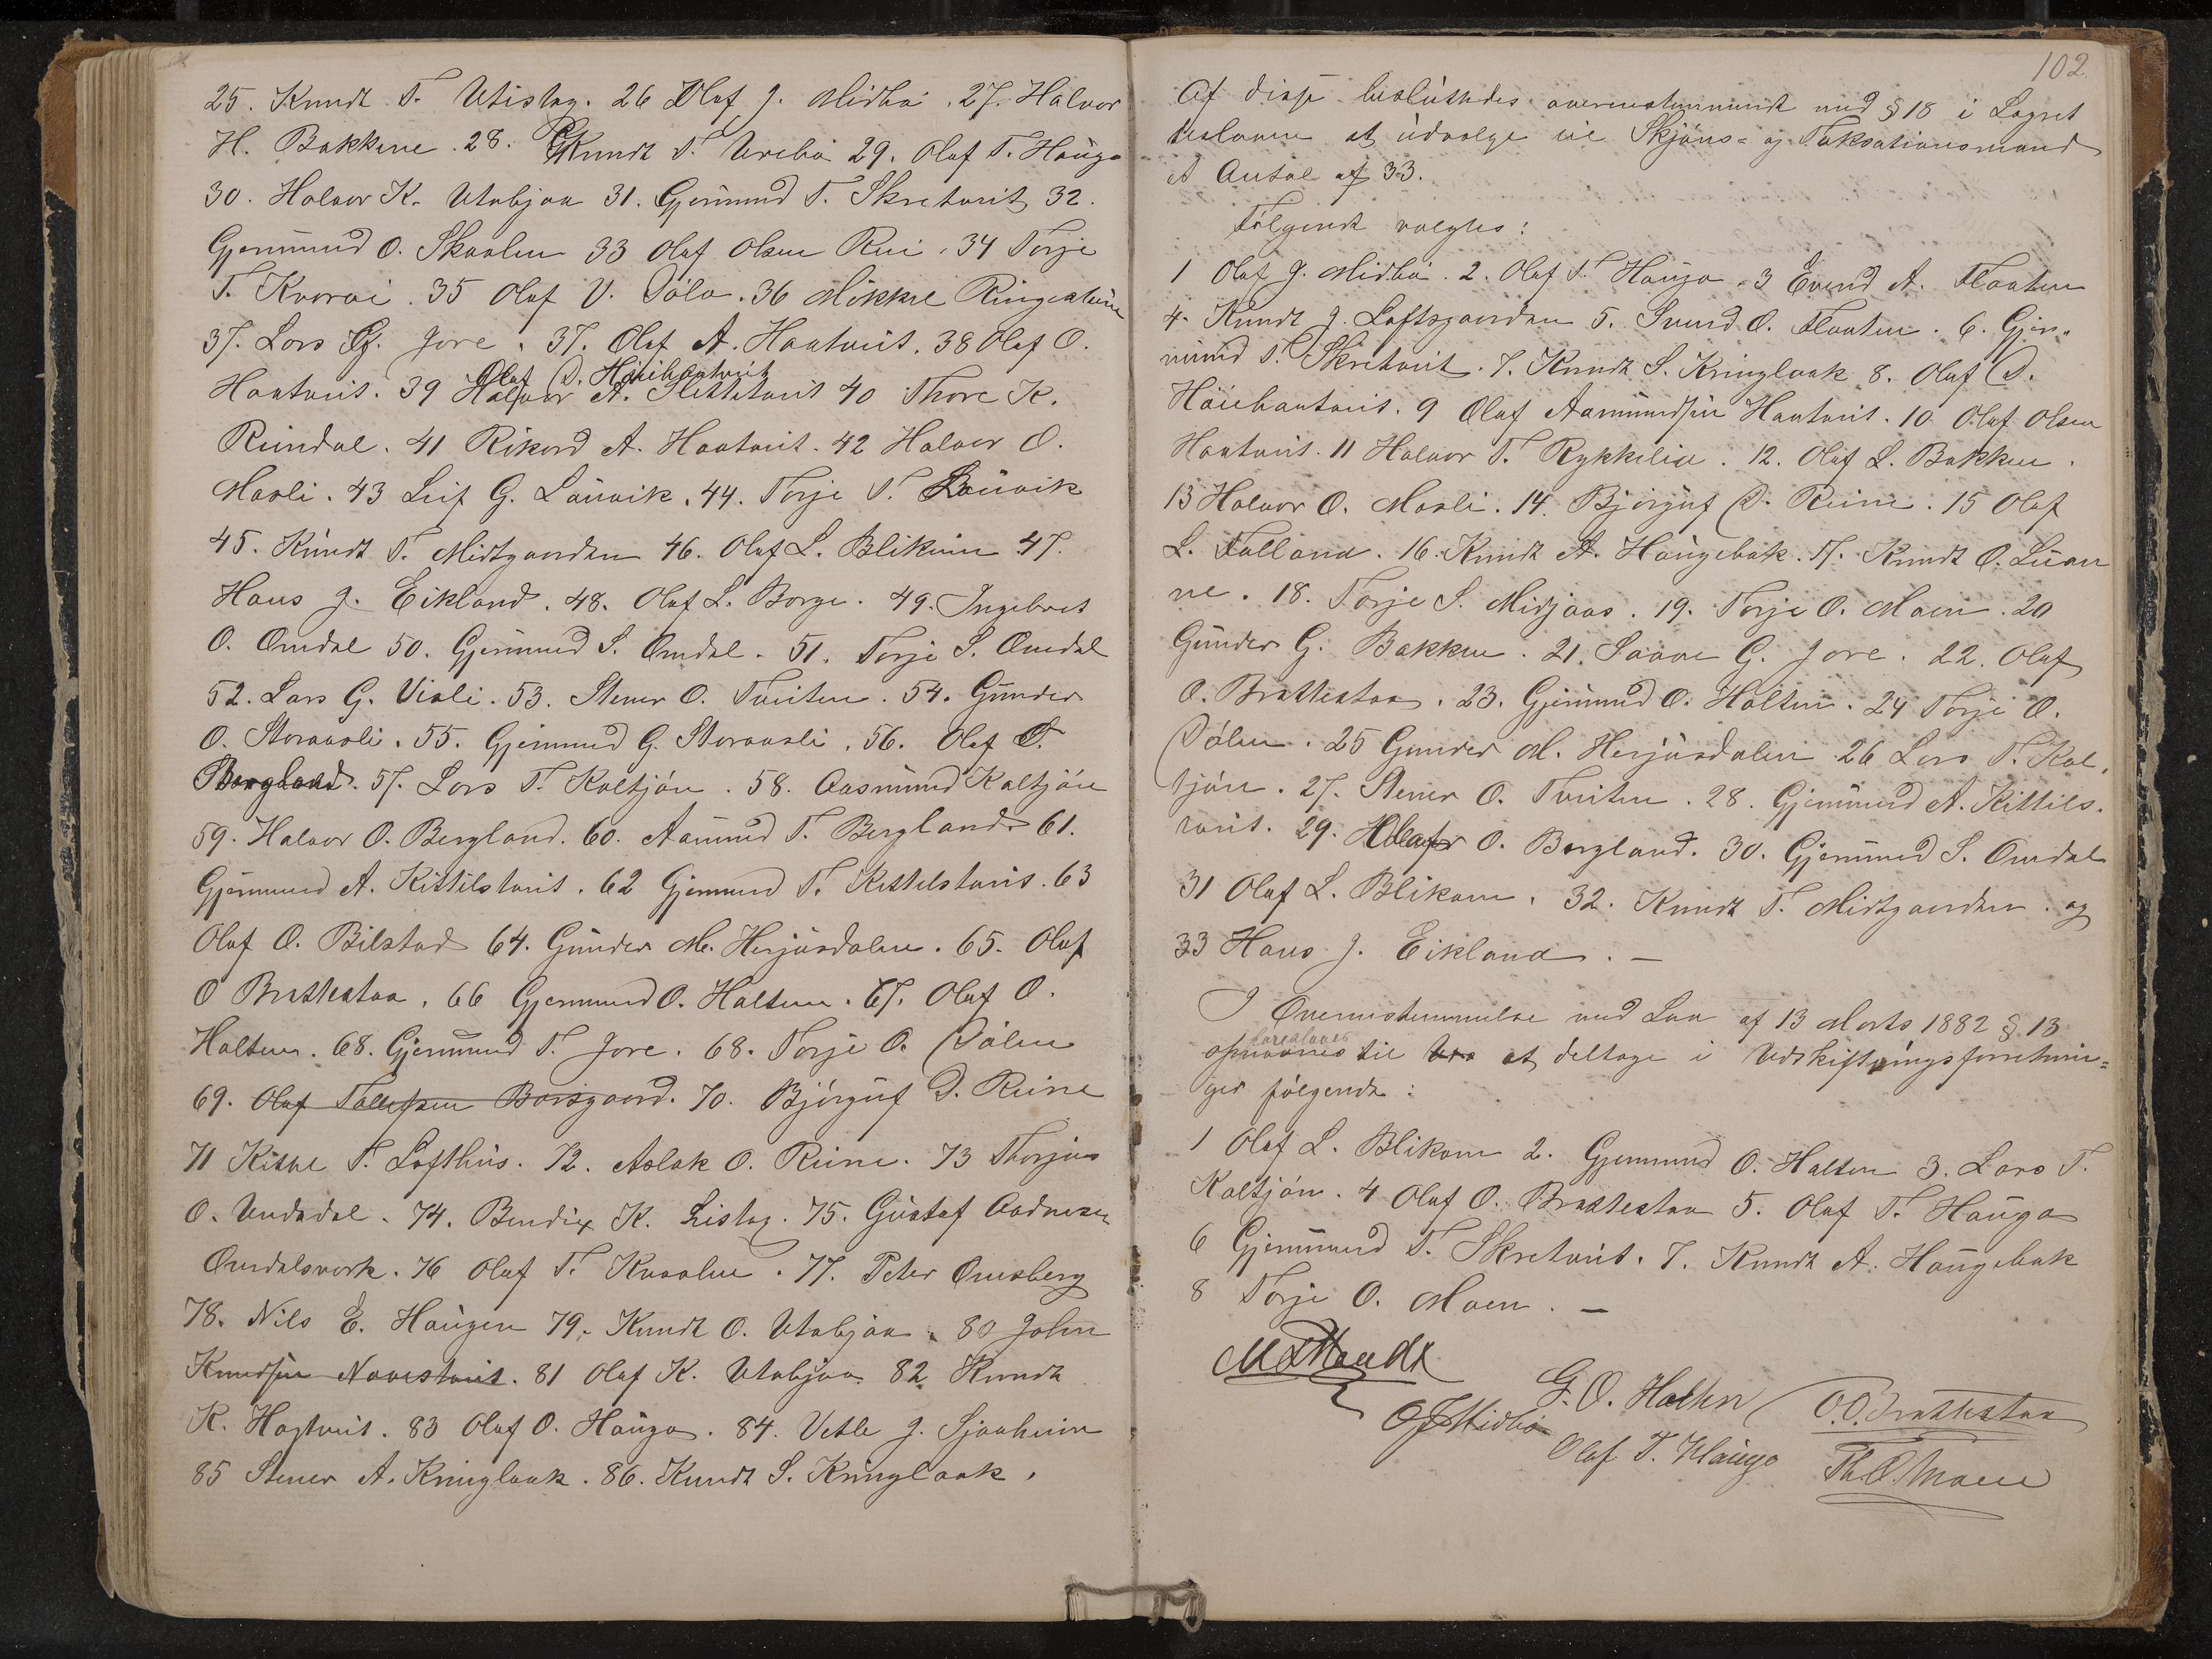 25. Knudt T. Utistog. 26 Olaf J. Midbø. 27. Halvor
H. Bakkene. 28. Knudt T. Urebø 29. Olaf T. Haugo
30. Halvor K. Utabjaa 31. Gjermund T. Skretveit 32.
Gjermund O. Skaalen 33 Olaf Olsen Rui. 34 Torje
T. 35 Olaf V. Døla. 36 Mikkel
37. Lars G. Jore. 37. Olaf A. Haatveit. 38 Olaf O.
Olaf D. Høiehaatveit
Haatveit. 39 Halvor A. Slettetveit 40 Thore K.
Rundal. 41 Rikard A. Haatveit. 42 Halvor O.
Maali. 43 Leif G. Lauvik. 44. Torje T. Lauvik
45. Knudt T. Midtgaarden 46. Olaf L. Blikom 47.
Hans J. Eikland. 48. Olaf L. Borge. 49. Ingebret
O. Omdal 50. Gjermund S. Omdal. 51. Torje S. Omdal
52. Lars G. Viali. 53. Stener O. Tveiten. 54. Gunder
O. Storaasli. 55. Gjermund G. Storaasli. 56. Olaf T.
Bergland. 57. Lars T. Kaltjøn. 58. Aasmund Kaltjøn
59. Halvor O. Bergland. 60. Aamund T. Bergland 61.
Gjermund A. Kittilstveit. 62 Gjermund T. Kittilstveit. 63
Olaf O. Bilstad 64. Gunder M. Herjusdalen. 65. Olaf
O Brattestaa. 66 Gjermund O. Halten. 67. Olaf O.
Halten. 68. Gjermund T. Jore. 68. Torje O. Dølen
69. Olaf Tallefsen Baisgaard. 70. Bjørguf D. Reine
71 Kittel T. Lofthus. 72. Aslak O. Reine. 73 Thorjus
O. Undedal. 74. Bendix K. Listog. 75. Gustaf Aadnesen
Omdalsverk. 76 Olaf T. Kvaalen. 77. Peter Omsberg
78. Nils E. Haugen 79. Knudt O. Utabjaa. 80 John
Knudsen Navestveit. 81 Olaf K. Utabjaa. 82. Knudt
K. Hagtveit. 83 Olaf O. Haugo. 84. Vetle J. Sjaaheim
85 Stener A. Kringlaak. 86. Knudt S. Kringlaak.
102
Af disse besluttedes overenstemmende med § 18 i Lagret
teloven at udvælge til Skjøns- og Taksationsmænd
et Antal af 33.
Følgende valgtes:
1 Olaf J. Midbø. 2. Olaf T. Haugo. 3 Evend A. Flaaten
4. Knudt J. Loftsgaarden 5. Svend O. Flaaten. 6. Gjer-
mund T. Skretveit. 7. Knudt S. Kringlaak 8. Olaf D.
Høiehaatveit. 9 Olaf Aamundsen Haatveit. 10 Olaf Olsen
Haatveit. 11 Halvor T. Rykkelid. 12. Olaf L. Bakken.
13 Halvor O. Maali. 14. Bjørguf D. Reine. 15 Olaf
L. Falland. 16. Knudt A. Haugebak. 17. Knudt O. Luan
ne. 18. Torje S. Midjaas. 19. Torje O. Moen. 20
Gunder G. Bakken. 21. Saave G. Jore. 22. Olaf
O. Brattestaa. 23. Gjermund O. Halten. 24 Torje O.
Dølen. 25 Gunder M. Herjusdalen 26 Lars T. Kal-
tjøn. 27. Stener O. Tveiten. 28. Gjermund A. Kittils-
tveit. 29. O. Bergland. 30. Gjermund S. Omdal
31 Olaf L. Blikom. 32. Knudt T. Midtgaarden. og
33 Hans J. Eikland. —
I Overenstemmelse med Lov af 13 Marts 1882 § 13
foreslaaes
opnævnes til at deltage i Udskiftningsforretnin-
ger følgende:
1 Olaf L. Blikom 2. Gjermund O. Halten 3. Lars T.
Kaltjøn. 4 Olaf O. Brattestaa 5. Olaf T. Haugo
6 Gjermund T. Skretveit. 7. Knudt A. Haugebak
8 Torje O. Moen. —
G. O. Halten O. O. Brattestaa
O J Midbø Olaf T. Haugo Th. O. Moen